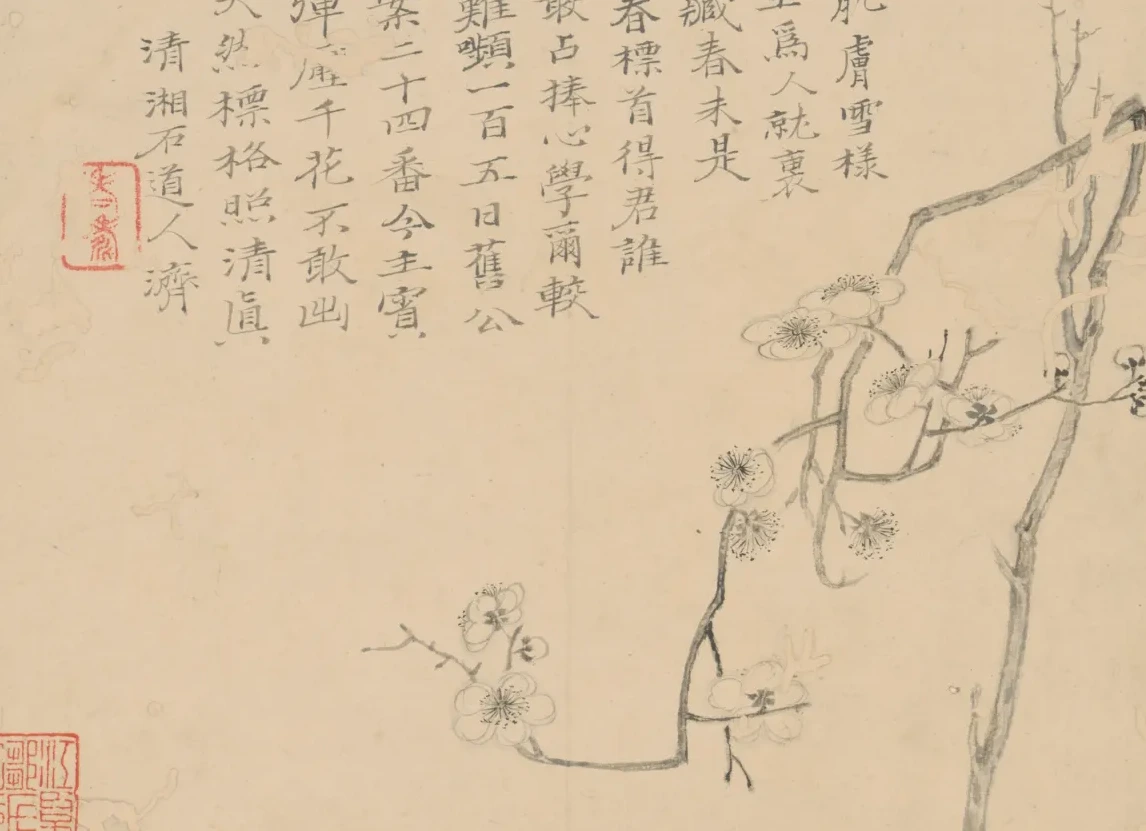 肌膚雪樣
爲人就裏
藏春未是
春標首得君誰
敢占捧心學爾較
難嚬一百五日舊公
案二十四番今主賓
彈壓千花不敢出
天然標格照清眞
清湘石道人濟